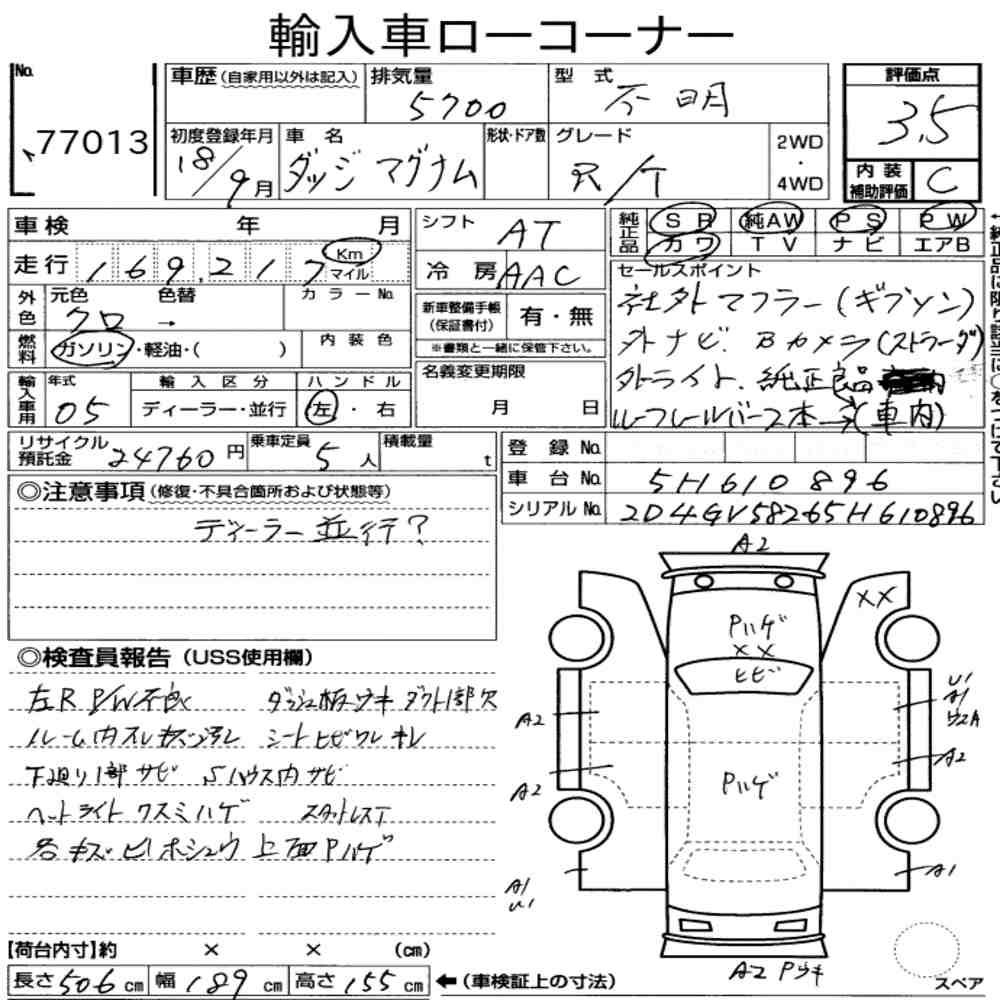 輸入車ローコーナー
No. 77013
車歴 (自家用以外は記入)
排気量 5700
型式 不明
評価点 3.5
初度登録年月 18/9月
車名 ダッジ マグナム
形状・ドア数
グレード R/T
2WD・4WD
内装補助評価 C
車検 年 月
走行 169,217 Km マイル
外色 元色 クロ → 色替 カラーNo.
燃料 ガソリン・軽油・( ) 内装色
シフト AT
冷房 AAC
新車整備手帳(保証書付) 有・無
※書類と一緒に保管下さい。
純正品 SR 純AW PS PW
カワ TV ナビ エアB
セールスポイント
社外マフラー(ギブソン)
外ナビ. Bカメラ(ストラーダ)
外ライト. 純正良品
ルーフレールバー2本→(車内)
輸入車用 年式 05
輸入区分 ディーラー・並行
ハンドル 左・右
名義変更期限 月 日
リサイクル預託金 24760円
乗車定員 5人
積載量 t
登録No.
車台No. 5H610896
シリアルNo. 2D4GV58265H610896
◎注意事項(修復・不具合箇所および状態等)
ディーラー並行?
A2
××
Pハゲ
××
ヒビ
U1
A1
A2
A2
A2
Pハゲ
A1
U1
A1
A2 Pウキ
スペア
◎検査員報告(USS使用欄)
左R P/W不良 ダッシュ板ウキ ダクト1部欠
ルーム内スレキズ汚レ シートヒビワレキレ
下廻り1部サビ Sハウス内サビ
ヘッドライトクスミハゲ スタットレスT
各キズ ヒ1ホシュウ 上面Pハゲ
【荷台内寸】約 × × (cm)
長さ506cm 幅189cm 高さ155cm ←(車検証上の寸法)